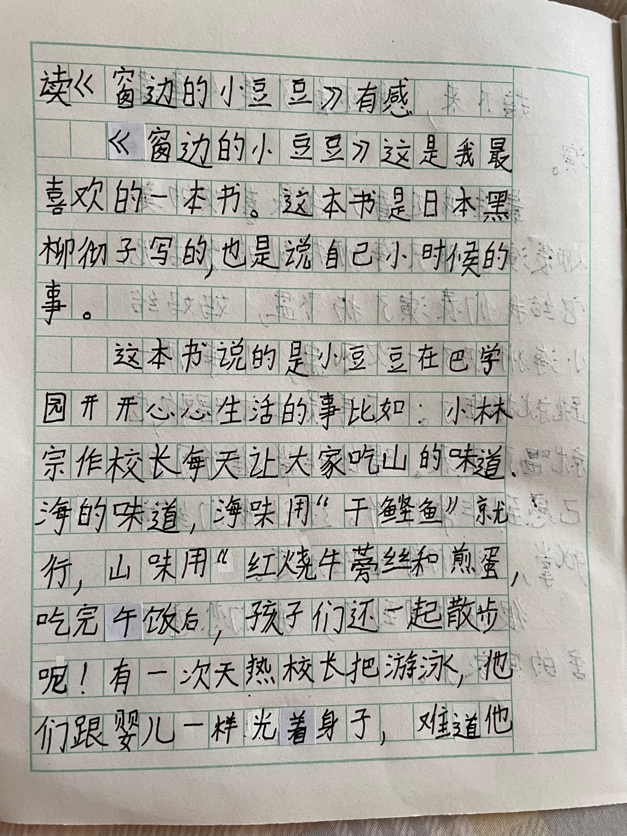 读《窗边的小豆豆》有感
《窗边的小豆豆》这是我最
喜欢的一本书。这本书是日本黑
柳彻子写的,也是说自己小时候的
事。
这本书说的是小豆豆在巴学
园开开心心生活的事比如:小林
宗作校长每天让大家吃山的味道、
海的味道,海味用“干鲣鱼》就
行,山味用“红烧牛蒡丝和煎蛋,
吃完午饭后,孩子们还一起散步
呢!有一次天热校长把游泳,他
们跟婴儿一样光着身子,难道他